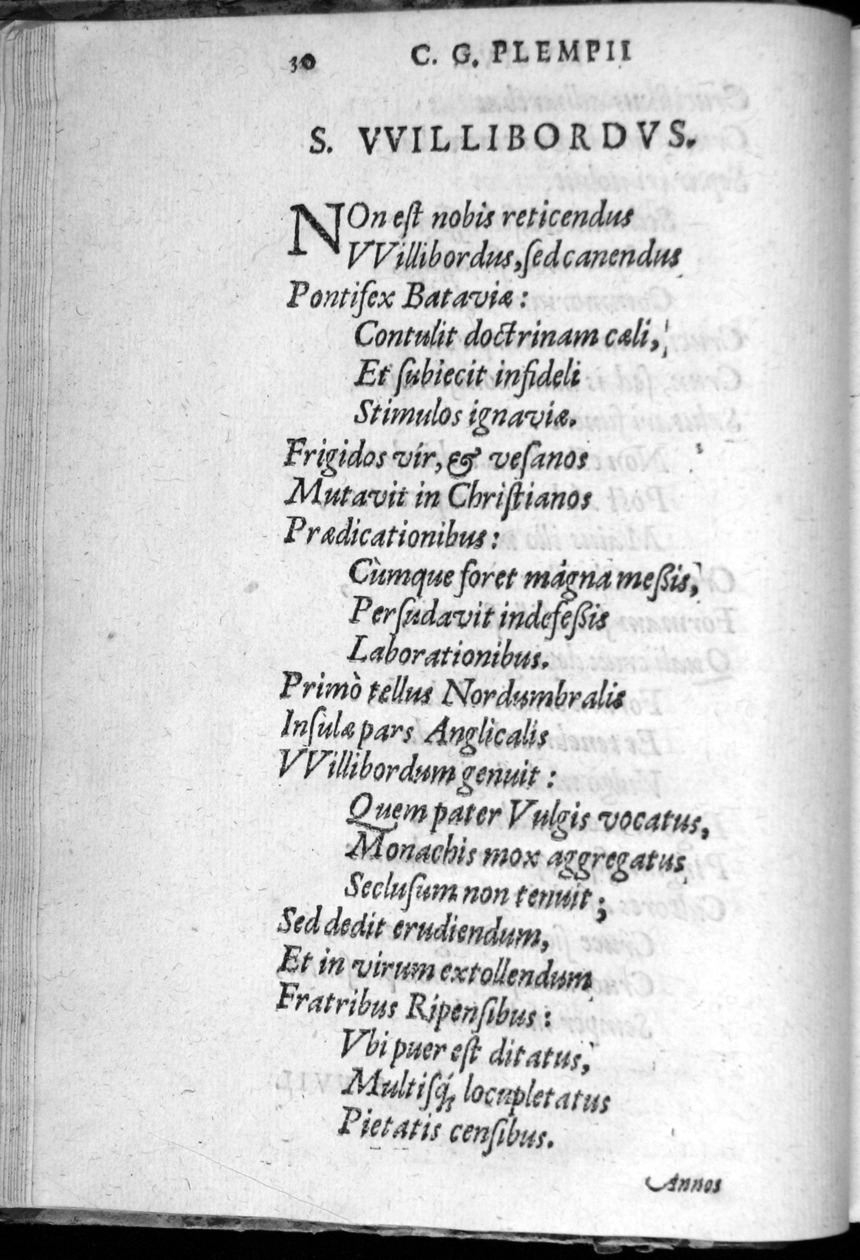 30 C. G. PLEMPII
S. VVILLIBORDVS.
NOn eſt nobis reticendus
VVillibordus, ſed canendus
Pontifex Bataviæ :
Contulit doctrinam cæli,
Et ſubiecit infideli
Stimulos ignaviæ.
Frigidos vir, & veſanos
Mutavit in Chriſtianos
Prædicationibus :
Cùmque foret magna meſsis,
Perſudavit indefeſsis
Laborationibus.
Primò tellus Nordumbralis
Inſulæ pars Anglicalis
VVillibordum genuit :
Quem pater Vulgis vocatus,
Monachis mox aggregatus
Secluſum non tenuit ;
Sed dedit erudiendum,
Et in virum extollendum
Fratribus Ripenſibus :
Vbi puer eſt ditatus,
Multiſq́, locupletatus
Pietatis cenſibus.
Annos